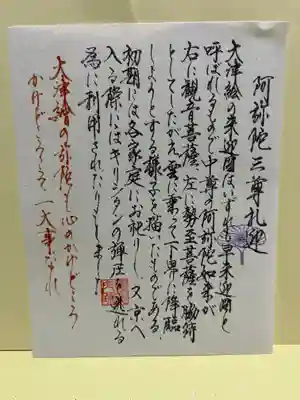 阿弥陀三尊礼迎
大津絵の来迎図はいずれも早来迎図と
呼ばれるもので中尊の阿弥陀如来が
右に観音菩薩、左に勢至菩薩を脇侍
としてしたがえ雲に乗って下界に降臨
しようとする様子を描いたものである。
初期には各家庭にお祀りし、又京へ
入る際にはキリシタンの弾圧を逃れる
為に利用されたりしました
大津絵の弥陀も心のかけどころ
かけどころで一大事なれ